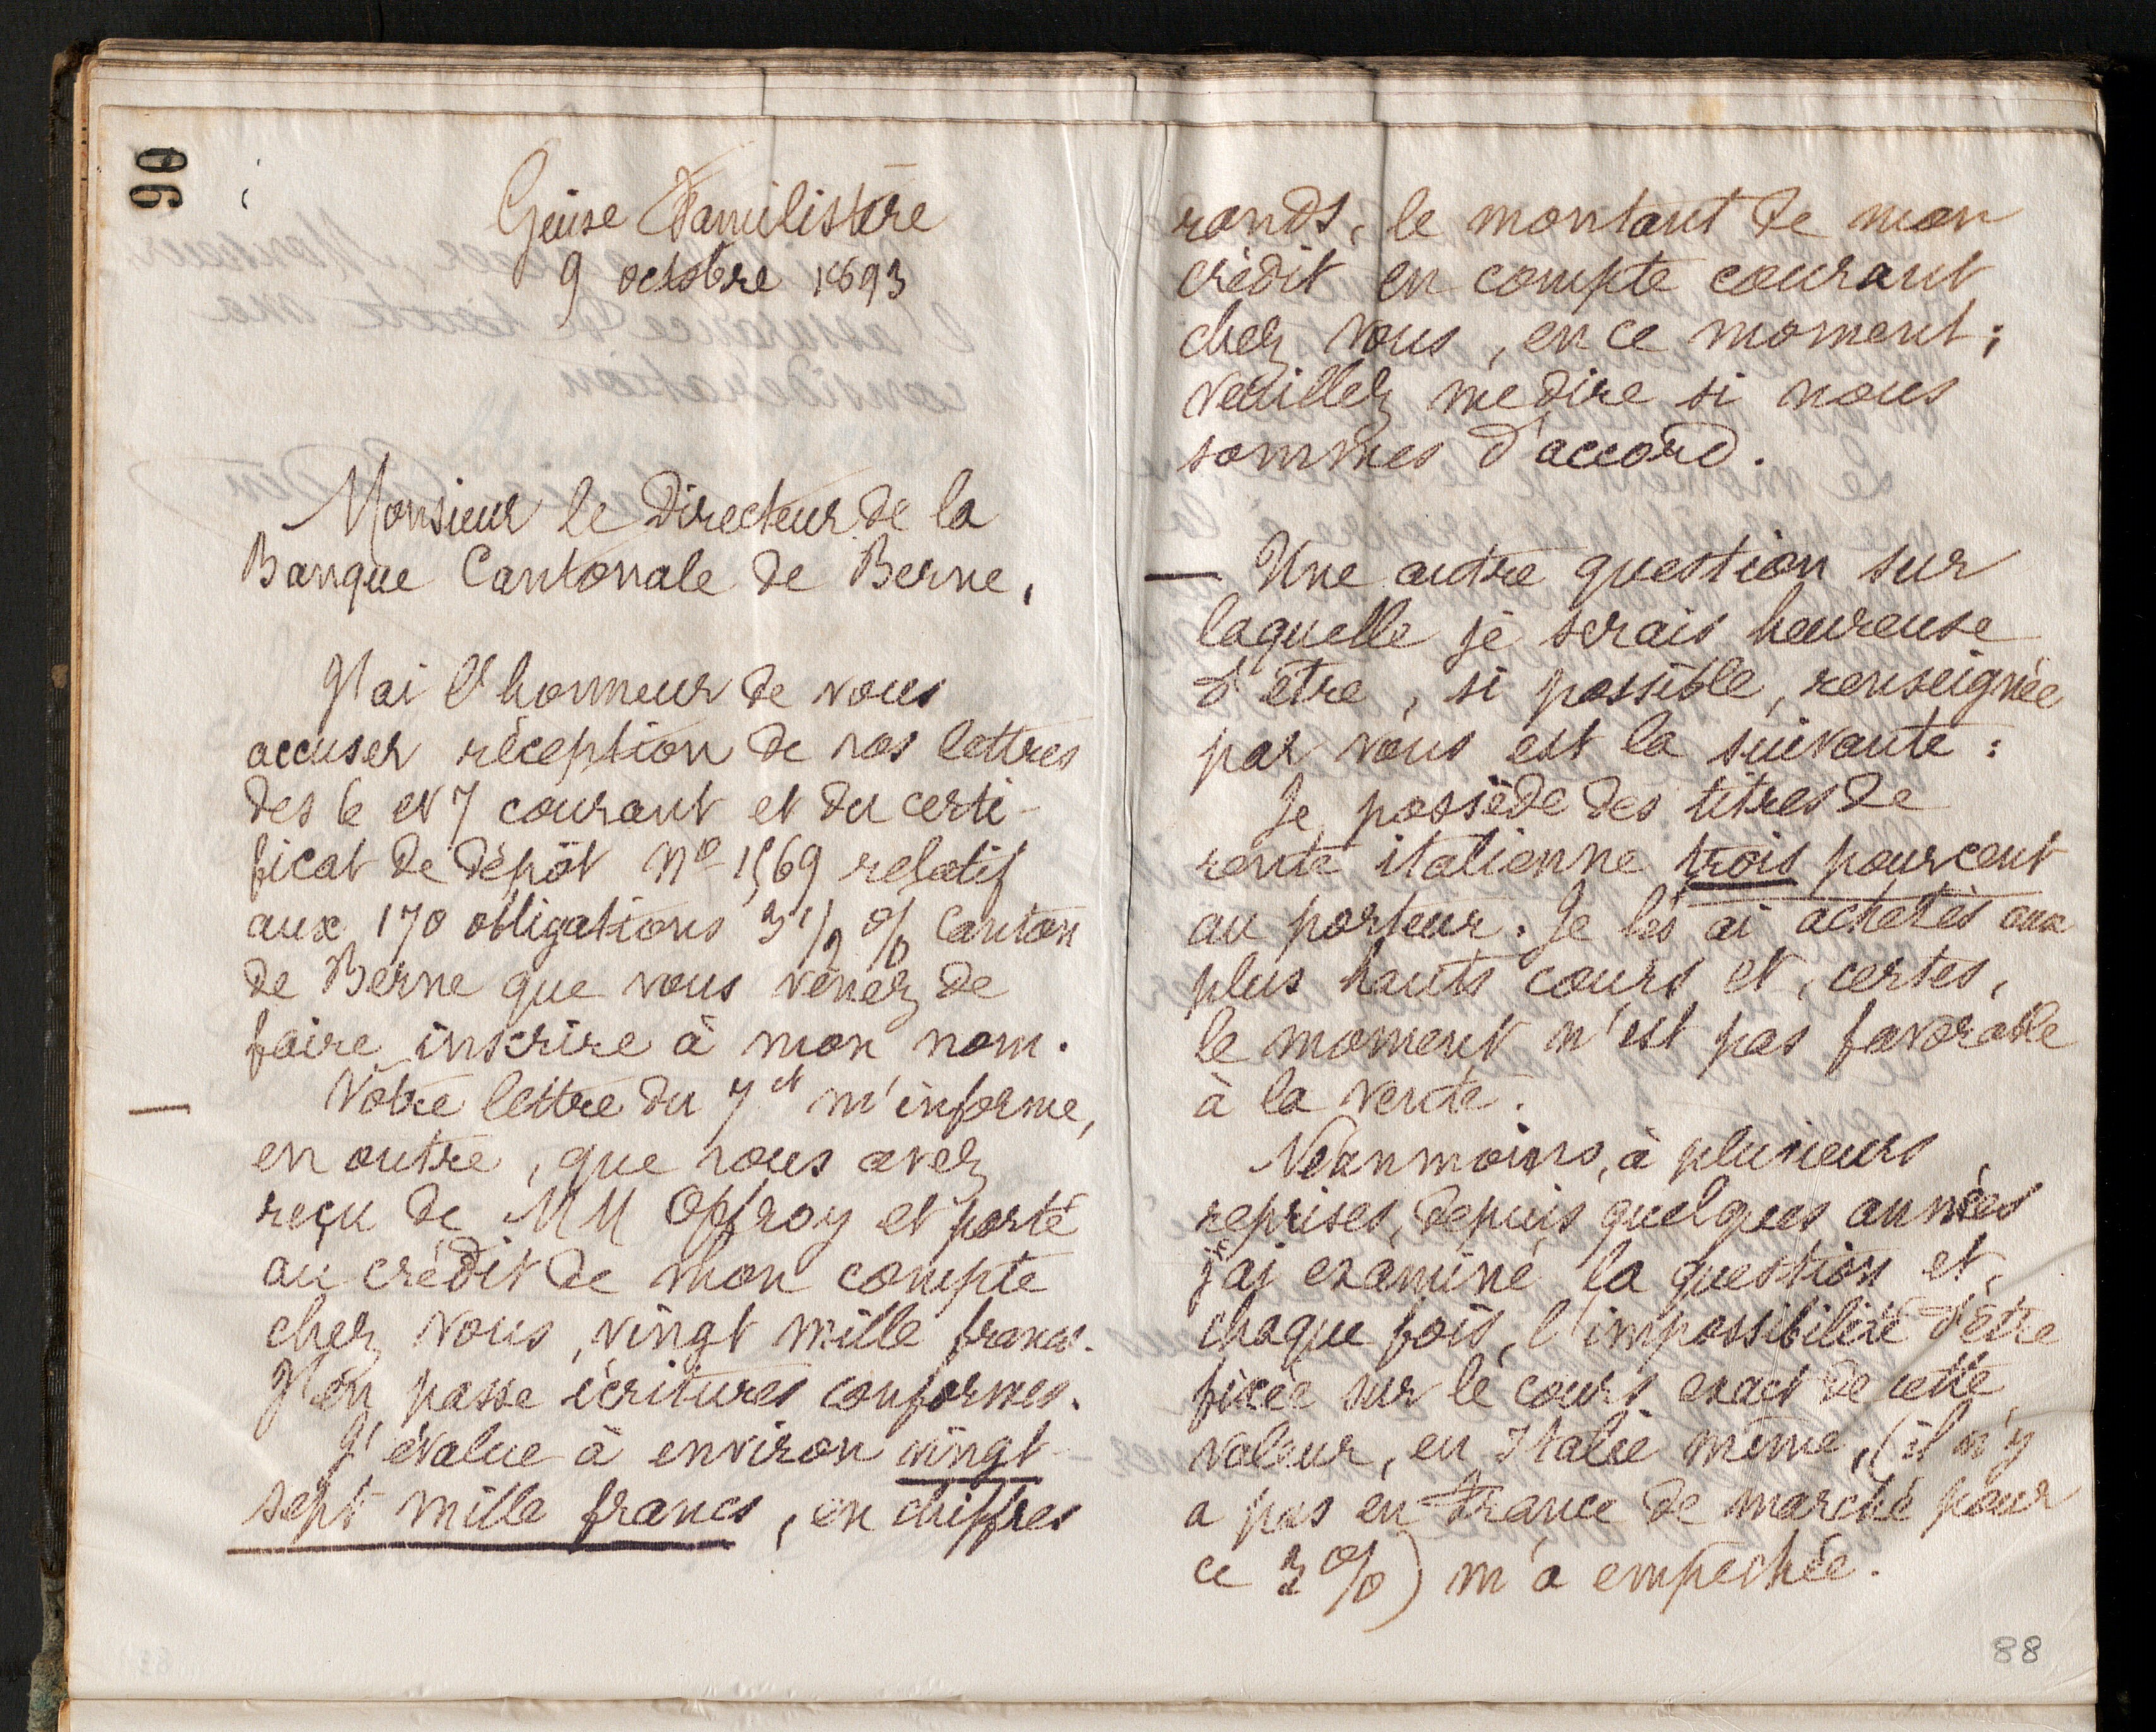 90
Guise Familistère
9 octobre 1893
Monsieur le Directeur de la
Banque Cantonale de Berne,
J'ai l'honneur de vous
accuser réception de vos lettres
des 6 et 7 courant et du certi-
ficat de dépôt no 1569 relatif
aux 170 obligations 3 1/2 % Canton
de Berne que vous venez de
faire inscrire à mon nom.
— Votre lettre du 7 ct m'informe,
en outre, que vous avez
reçu de MM Offroy et porté
au crédit de mon compte
chez vous, vingt mille francs.
J'en passe écritures conformes.
J'évalue à environ vingt-
sept mille francs, en chiffres
ronds, le montant de mon
crédit en compte courant
chez vous, en ce moment;
veuillez me dire si nous
sommes d'accord.
— Une autre question sur
laquelle je serais heureuse
d'être, si possible, renseignée
par vous est la suivante:
Je possède des titres de
rente italienne trois pour cent
au porteur. Je les ai achetés aux
plus hauts cours et, certes,
le moment n'est pas favorable
à la vente.
Néanmoins, à plusieurs
reprises, depuis quelques années
j'ai examiné la question et,
chaque fois, l'impossibilité d'être
fixée sur le cours exact de cette
valeur, en Italie même, (il n'y
a pas en France de marché pour
ce 3 %) m'a empêchée.
88